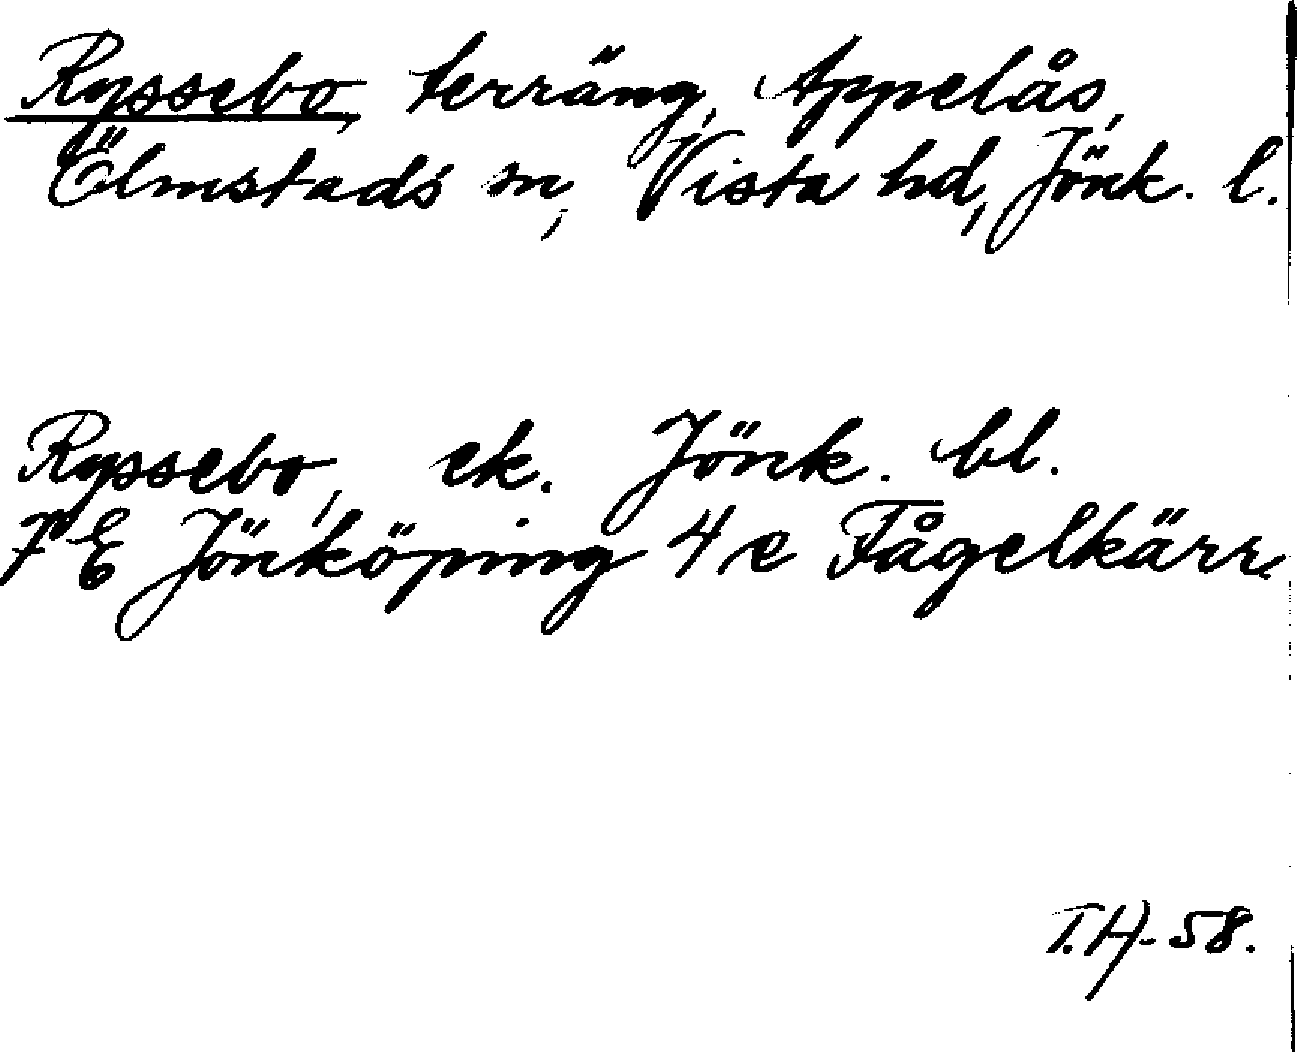 Ryssebo, terräng, Appelås,
Ölmstads sn, Vista hd, Jönk. l.
Ryssebo, ek. Jönk. bl.
7 E Jönköping 4 e Fågelkärr.
T.H-58.